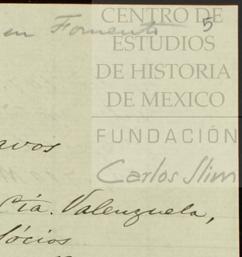 en Fomento 5
CENTRO DE
ESTUDIOS
DE HISTORIA
DE MEXICO
FUNDACIÓN
Carlos Slim
avos
Cía. Valenzuela,
Sócios